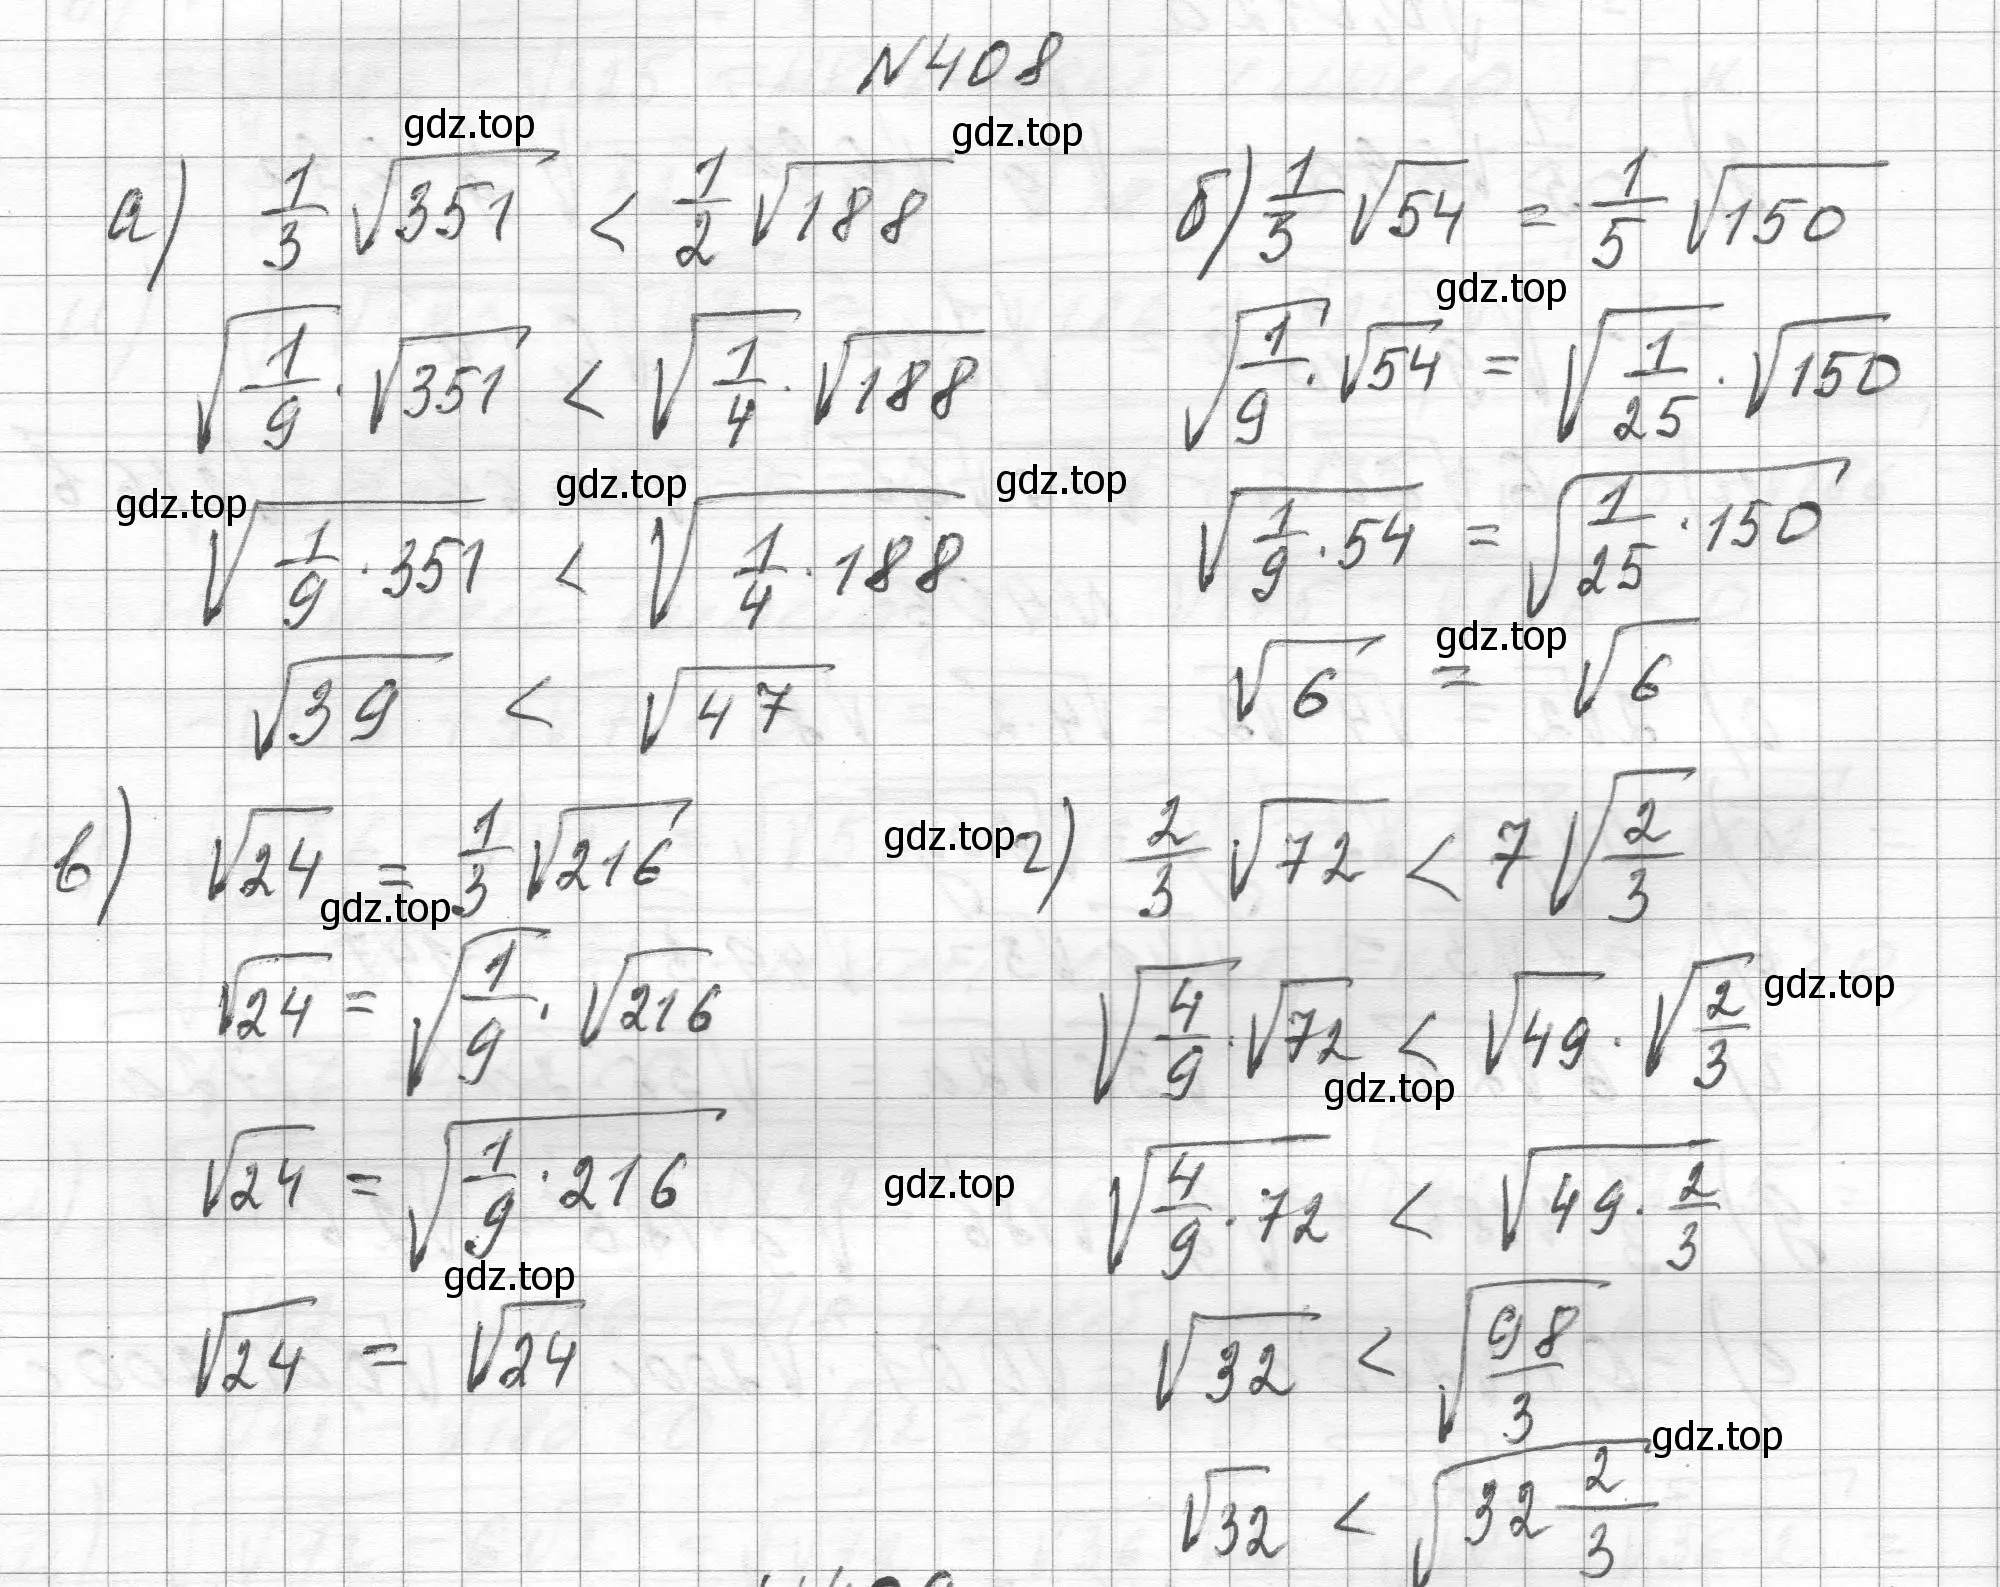 N408
gdz.top gdz.top
а) 1/3 √351 < 1/2 √188
√(1/9) · √351 < √(1/4) · √188
gdz.top gdz.top gdz.top
√(1/9 · 351) < √(1/4 · 188)
√39 < √47
б) 1/3 √54 = 1/5 √150
gdz.top
√(1/9) · √54 = √(1/25) · √150
√(1/9 · 54) = √(1/25 · 150)
gdz.top
√6 = √6
в) √24 = 1/3 √216
gdz.top
√24 = √(1/9) · √216
√24 = √(1/9 · 216)
gdz.top
√24 = √24
gdz.top
г) 2/3 √72 < 7 √(2/3)
gdz.top
√(4/9) · √72 < √49 · √(2/3)
gdz.top
gdz.top
√(4/9 · 72) < √(49 · 2/3)
√32 < √(98/3)
gdz.top
√32 < √(32 2/3)